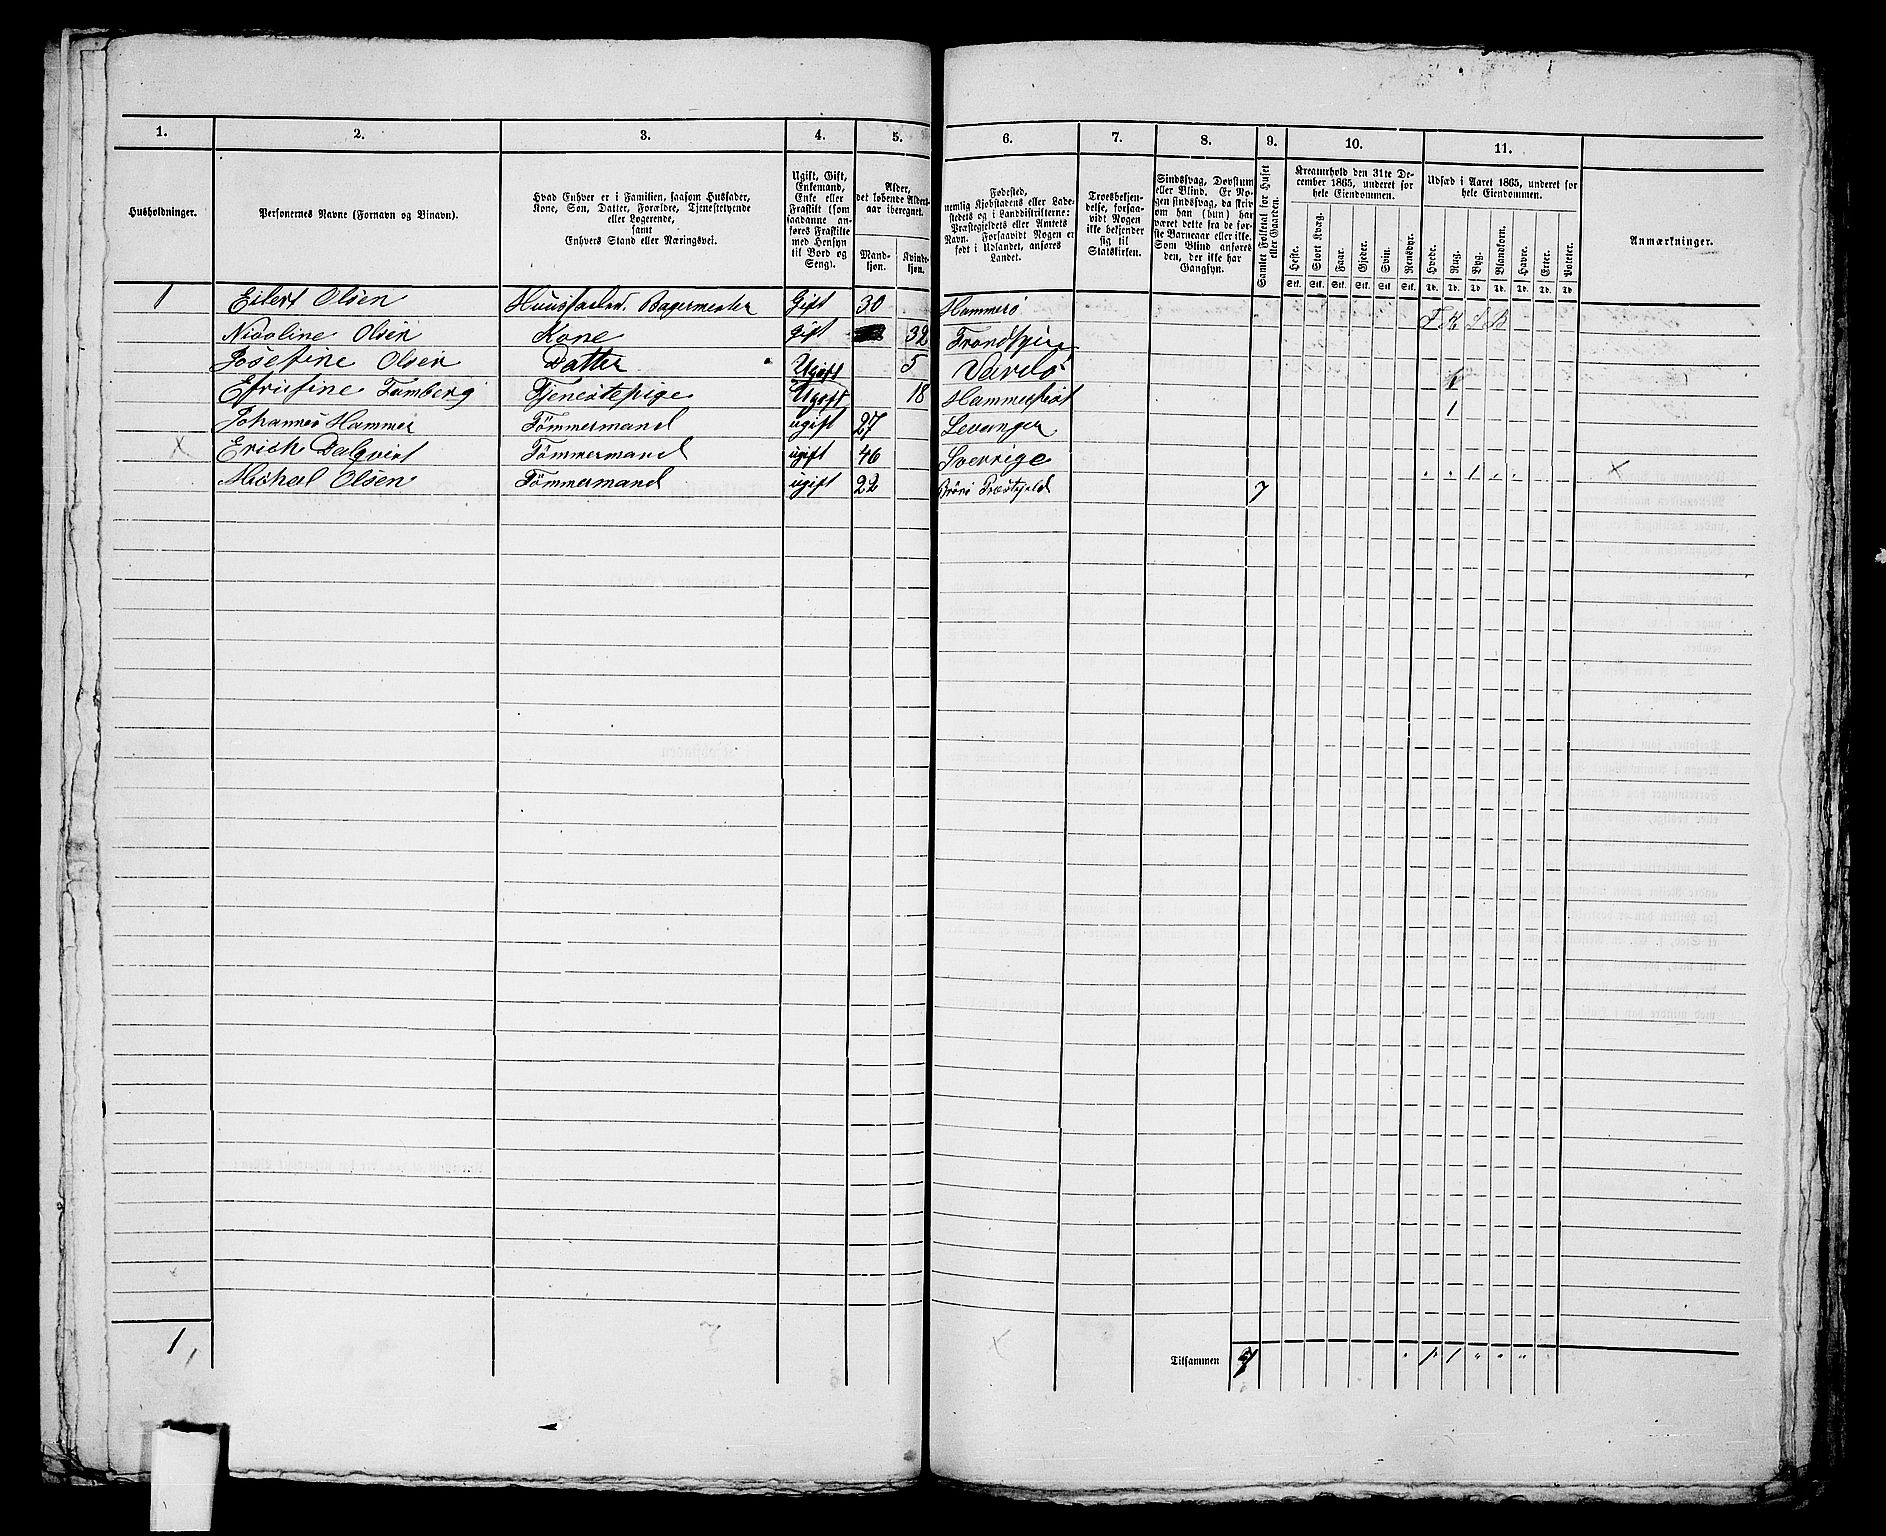 1. 2. 3. 4. 5. 6. 7. 8. 9. 10. 11.
Husholdninger.
Personernes Navne (Fornavn og Tilnavn).
Hvad Enhver er i Familien, saasom Husfader,
Kone, Søn, Datter, Forældre, Tjenestetyende
eller Logerende,
samt
Enhvers Stand eller Næringsvei.
Ugift, Gift,
Enkemand,
Enke eller
Fraskilt (som
saadanne an-
føres Fraskilte
med Hensyn
til Bord og
Seng).
Alder,
det løbende Alders-
aar iberegnet.
Mand-
kjøn.
Kvinde-
kjøn.
Fødested,
nemlig Kjøbstadens eller Lade-
stedets og i Landdistrikterne:
Præstegjeldets eller Amtets
Navn. Forsaavidt Nogen er
født i Udlandet, anføres
Landet.
Troesbekjen-
delse, forsaa-
vidt Nogen
ikke bekjender
sig til
Statskirken.
Sindssvag, Døvstum
eller Blind. Er No-
gen sindssvag, da skriv
om han (hun) har
været dette fra de før-
ste Barneaar eller ikke.
Som Blind anføres
den, der ikke har
Gangsyn.
Samlet Folketal for Huset
eller Gaarden.
Kreaturhold den 31te De-
cember 1865, underet for
hele Eiendommen.
Heste. Stort Kvæg. Faar. Gjeder. Svin. Rensdyr.
Stk. Stk. Stk. Stk. Stk. Stk.
Udsæd i Aaret 1865, underet for
hele Eiendommen.
Hvede. Rug. Byg. Blandkorn. Havre. Erter. Poteter.
Td. Td. Td. Td. Td. Td. Td.
Anmærkninger.
1 Eilert Olsen Huusfader. Bagermester Gift 30 Hammerø
Nicoline Olsen Kone gift 32 Trondhjem
Josefine Olsen Datter Ugift 5 Vardø
Efrifine Tamberg Tjenestepige Ugift 18 Hammerfest
Johannes Hammer Tømmermand ugift 27 Levanger
Erich Dalqvist Tømmermand ugift 46 Sverrige
Michael Olsen Tømmermand ugift 22 Brönö Præstejeld 7
1
Tilsammen 7